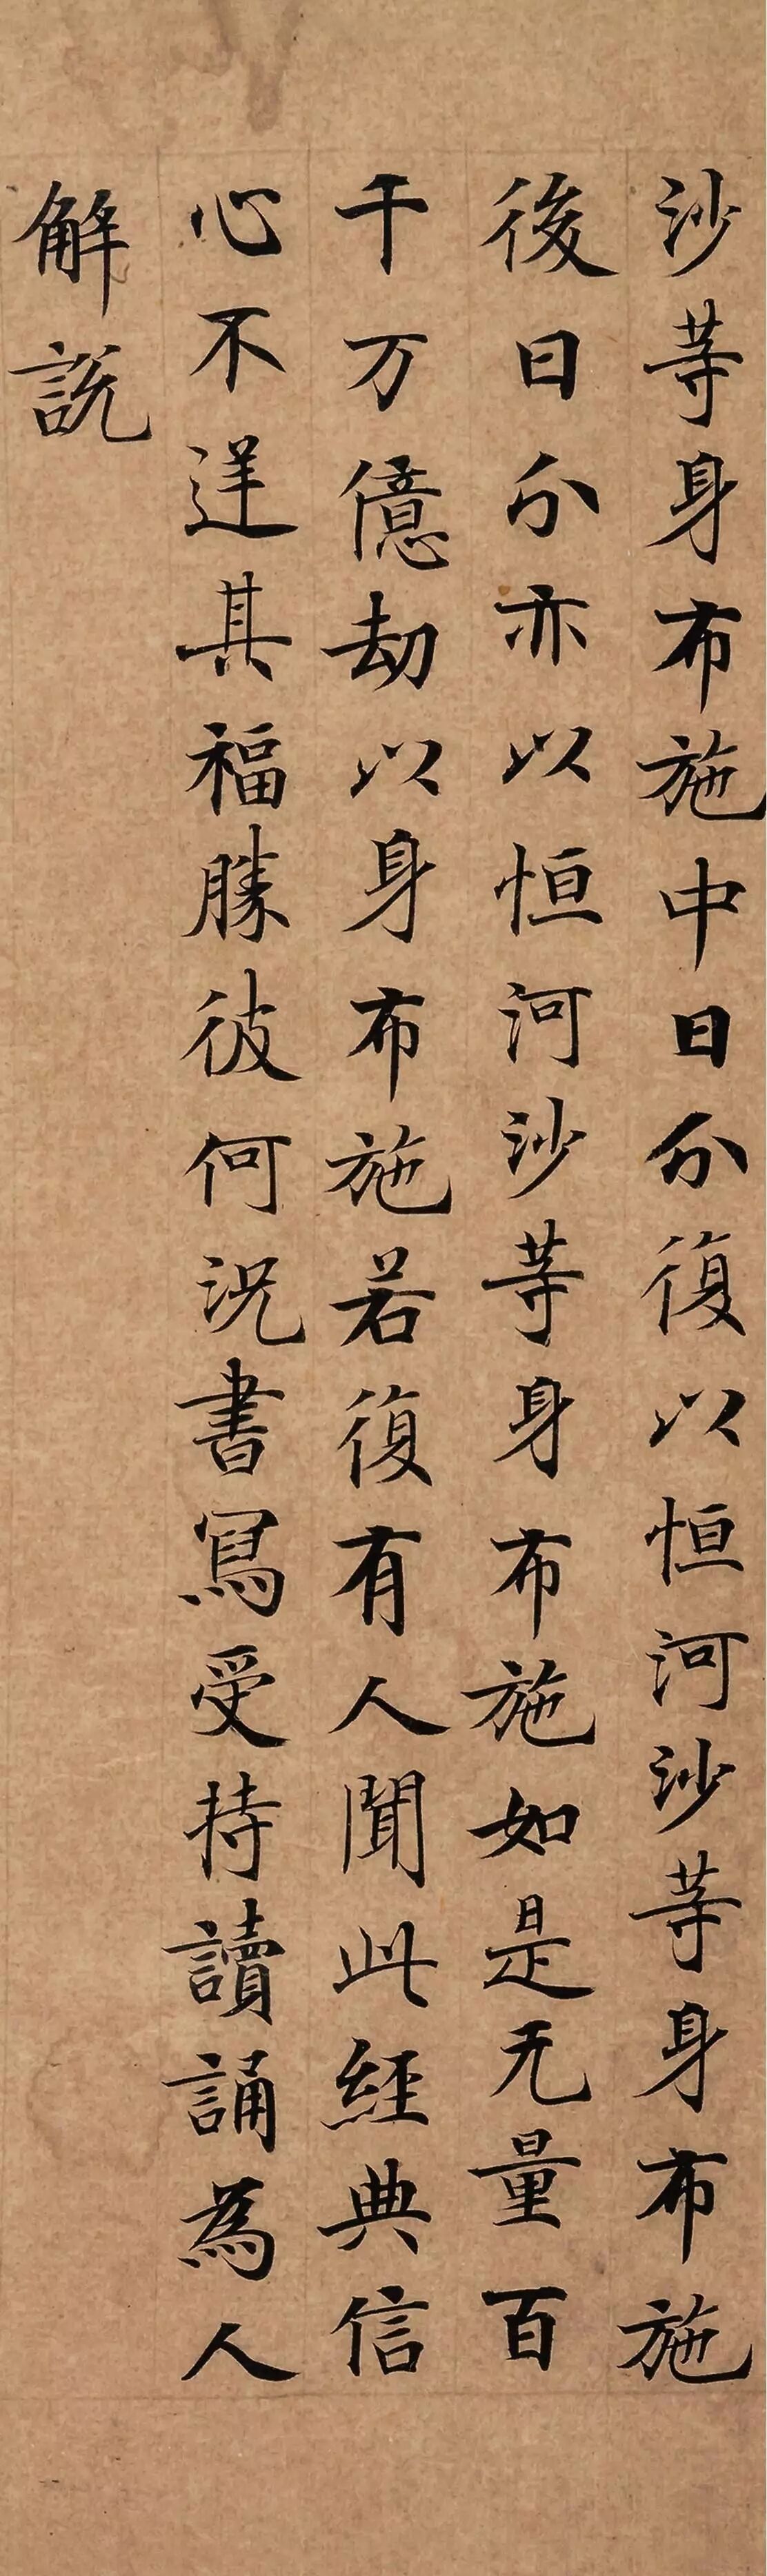 沙等身布施中日分復以恒河沙等身布施
後日分亦以恒河沙等身布施如是无量百
千万億劫以身布施若復有人聞此經典信
心不逆其福勝彼何況書寫受持讀誦為人
解説